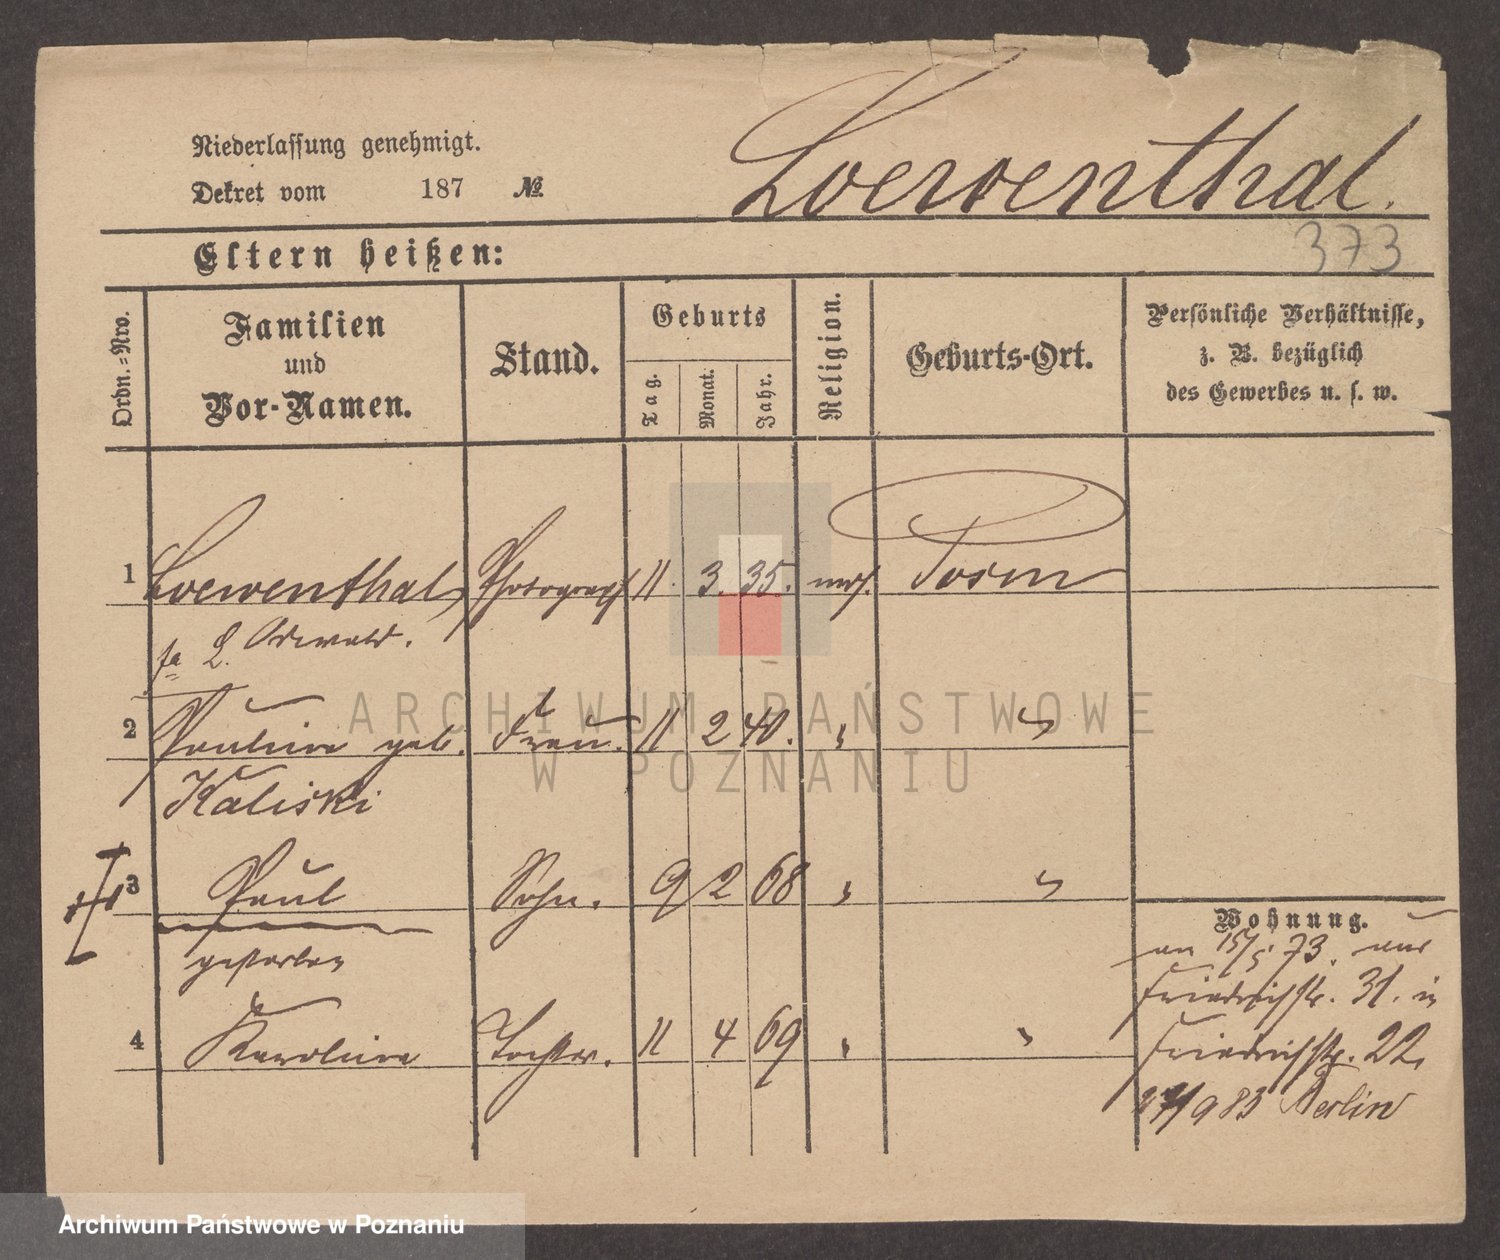 Niederlassung genehmigt.
Dekret vom 187 №
Loewenthal.
373
Eltern heißen:
Ordn.=Nro.
Familien
und
Vor-Namen.
Stand.
Geburts
Tag.
Monat.
Jahr.
Religion.
Geburts-Ort.
Persönliche Verhältnisse,
z. B. bezüglich
des Gewerbes u. s. w.
1 Loewenthal, Photograph 11. 3. 35. mos. Posen
fa L.
2 Pauline geb. Frau. 11 2 40. " "
Kaliski
3 Paul Sohn. 9 2 68 " "
gestorben
4 Karoline Tochter. 11 4 69 " "
Wohnung.
an 15/5 73. aus
Friedrichstr. 31. in
Friedrichstr. 22.
9 83 Berlin
ARCHIWUM PAŃSTWOWE
W POZNANIU
Archiwum Państwowe w Poznaniu